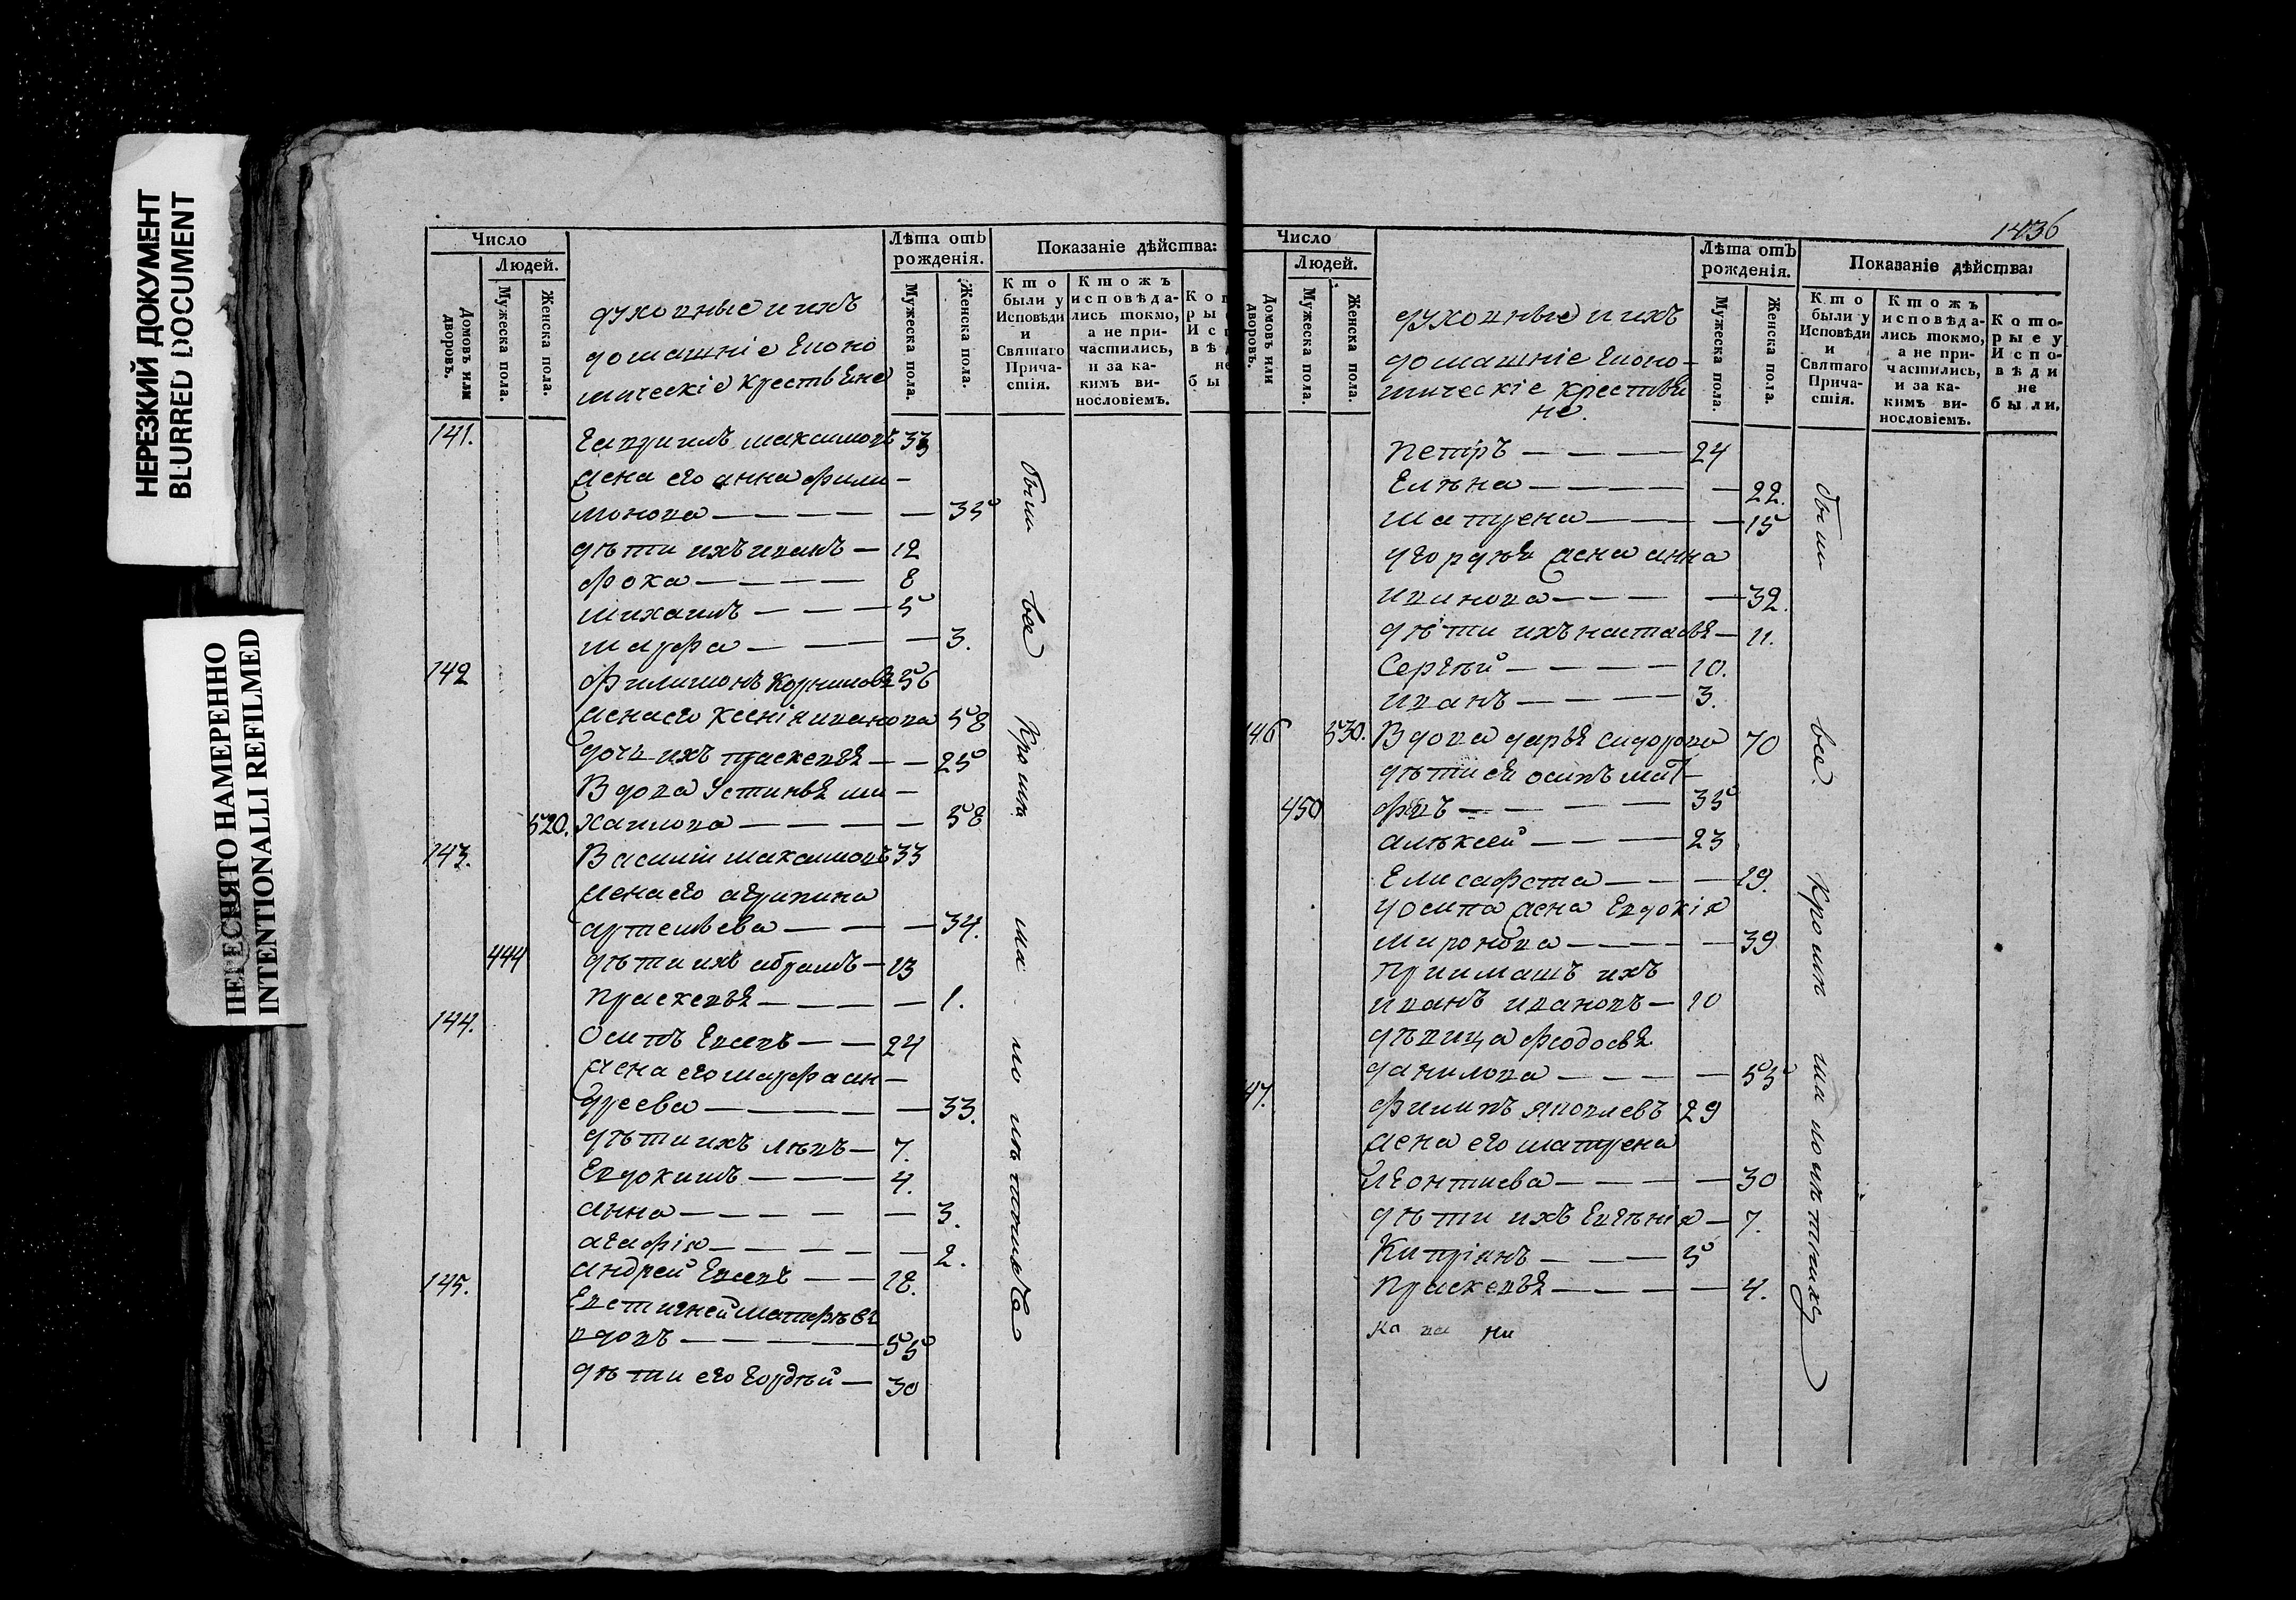 НЕРЕЗКИЙ ДОКУМЕНТ
BLURRED DOCUMENT
ПЕРЕСНЯТО НАМЕРЕННО
INTENTIONALLI REFILMED
Число
Людей.
Домовъ или дворовъ.
Мужеска пола.
Женска пола.
духовные и ихъ
домашніе Еконо
мическіе крестьяне
Лѣта отъ рожденія.
Мужеска пола.
Женска пола.
Показаніе дѣйства:
Кто были у Исповѣди и Святаго Причастія.
Ктожъ исповѣдались токмо, а не причастились, и за какимъ винословіемъ.
141. Гавриилъ максимовъ 33
жена его анна фили-
монова 35
дѣти ихъ иванъ 12
фока 8
михаилъ 5
марфа 3.
142 филимонъ Корниловъ 56
жена его ксенія иванова 58
дочь ихъ праскевья 25
Вдова Устинья ми-
520. хаилова 58
143. Василій максимовъ 33
жена его агрипина
артемьева 34.
444 дѣти ихъ абрамъ 13
праскевья 1.
144. Осипъ Евсевъ 24
жена его марфа ан-
дреева 33.
дѣти ихъ львъ 7.
Евдокимъ 4.
анна 3.
агафія 2.
145. андрей Евсевъ 18.
Евстигней матфѣевъ
вдовъ 55
дѣти его гордѣй 30
были
все
кромѣ
ма
ло
лѣтнихъ
1436
Число
Людей.
Домовъ или дворовъ.
Мужеска пола.
Женска пола.
духовные и ихъ
домашніе Еконо-
мическіе крестья
не.
Лѣта отъ рожденія.
Мужеска пола.
Женска пола.
Показаніе дѣйства:
Кто были у Исповѣди и Святаго Причастія.
Ктожъ исповѣдались токмо, а не причастились, и за какимъ винословіемъ.
Которые у Исповѣди не были.
петръ 24
Елѣна 22.
матрена 15
у гордѣя жена анна
иванова 32.
дѣти ихъ настасья 11.
Сергѣй 10.
иванъ 3.
146 530. Вдова дарья сидорова 70
дѣти ея осипъ мат-
450 фѣвъ 35
алѣксей 23
Елисафета 19.
у осипа жена Евдокія
миронова 39
приимашъ ихъ
иванъ ивановъ 10
дѣвица феодосья
данилова 55
47. филипъ яковлевъ 29
жена его матрена
леонтиева 30
дѣти ихъ Евгѣнія 7.
Кипріянъ 5
праскевья 4.
были
все
кромѣ
ма
лолѣтнихъ